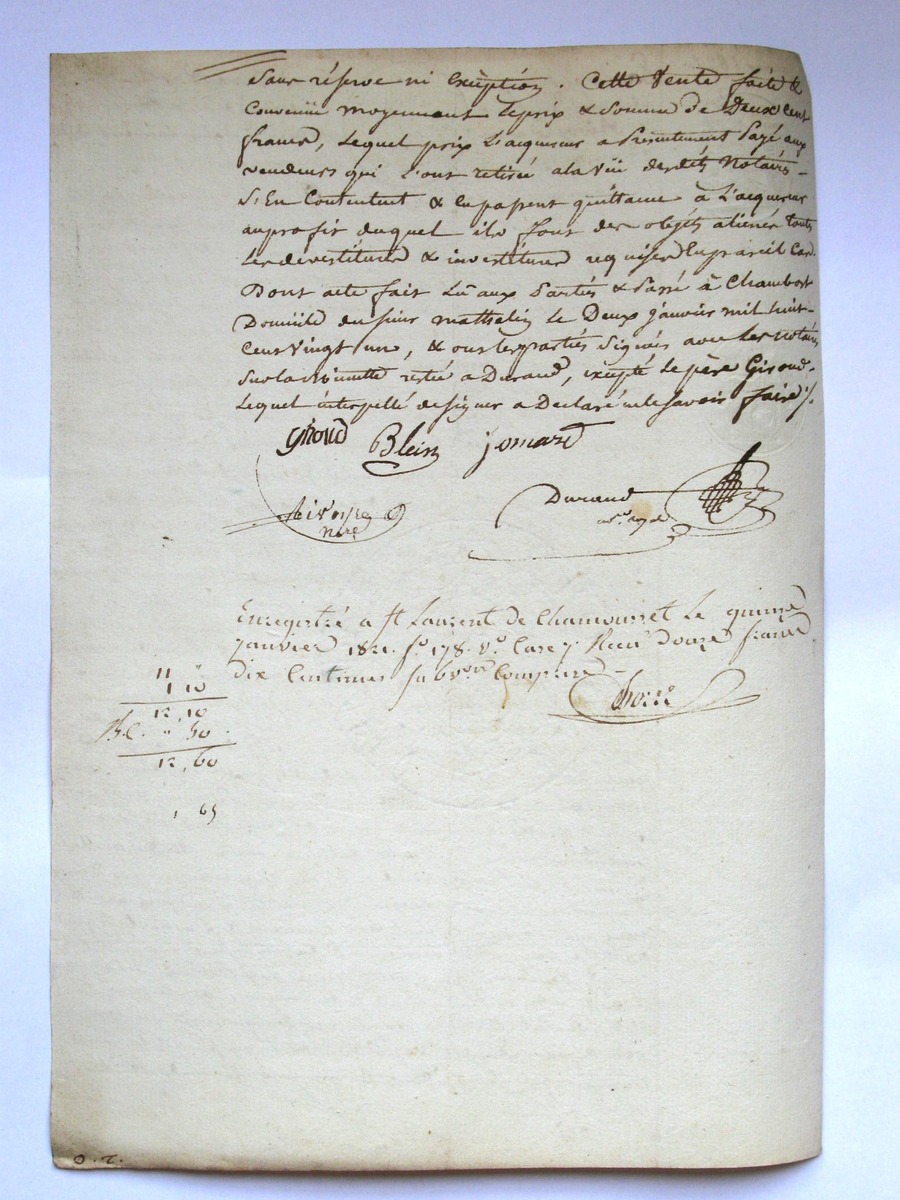 Sans réserve ni exception. Cette Vente faite &
Convenüe moyennant le prix & Somme de Deux Cent
francs, Lequel prix L'acquereur a Présentement Payé aux
vendeurs qui L'ont retirée a la vüe desdits Notaires
S'En Contentent & en passent quittance à L'acquereur
au profit duquel ils font des objéts alienés toutes
Les devestitures & investitures requises En pareil Cas
Dont acte fait Lû aux Parties & Passé à Chambost
Domicile du sieur mathelin Le Deux janvier mil huit
Cent Vingt un, & ont les parties Signés avec Les notaires
Sur la minutte restée a Durand, excépté Le père Giroud
Lequel interpellé de signer a Declaré ne le Savoir faire ./.
Giroud Blein jomard
Durand
not.re royal
nore
Enregistré a St Laurent de Chamousset Le quinze
janvier 1821. fo 178. vo. Case 7 Recu douze francs
dix Centimes subvon Comprise
11 "
1 10
12, 10
" 50
12, 60
, 65